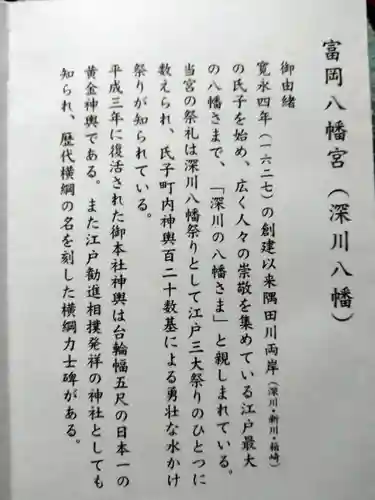 富岡八幡宮（深川八幡）
御由緒
寛永四年（一六二七）の創建以来隅田川両岸（深川・新川・箱崎）
の氏子を始め、広く人々の崇敬を集めている江戸最大
の八幡さまで、「深川の八幡さま」と親しまれている。
当宮の祭礼は深川八幡祭りとして江戸三大祭りのひとつに
数えられ、氏子町内神輿百二十数基による勇壮な水かけ
祭りが知られている。
平成三年に復活された御本社神輿は台輪幅五尺の日本一の
黄金神輿である。また江戸勧進相撲発祥の神社としても
知られ、歴代横綱の名を刻した横綱力士碑がある。